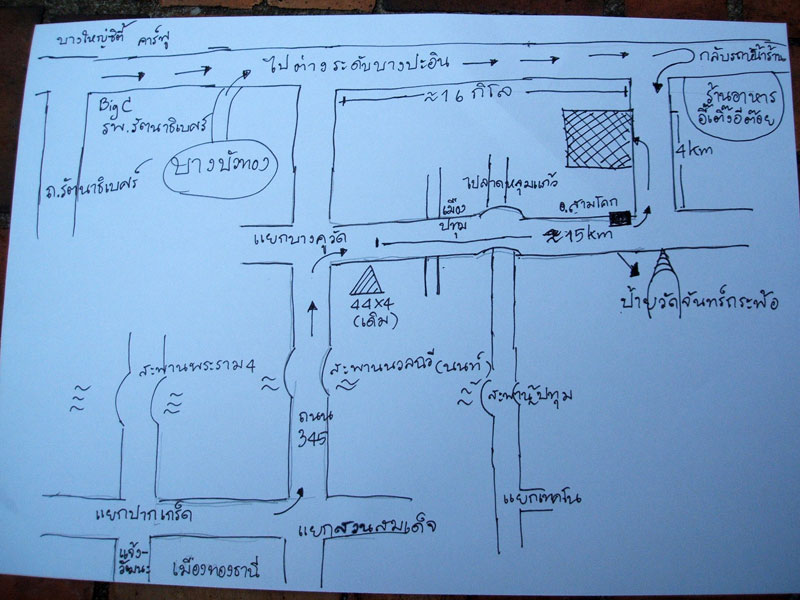 บางใหญ่ซิตี้ คาร์ฟู
ไปต่างระดับบางปะอิน
กลับรถใต้สะพาน
Big C
รพ.รัตนาธิเบศร์
≈16 กิโล
ร้านอาหาร
บางบัวทอง
ถ.รัตนาธิเบศร์
4km
ไปลาดหลุมแก้ว
เมือง
ปทุม
อ.สามโคก
แยกบางคูวัด
≈15km
44x4
(เดิม)
ป้ายวัดจันทร์กระพ้อ
สะพานพระราม4
สะพานนวลฉวี(นนท์)
สะพานปทุม
ถนน
345
แยกปากเกร็ด
แยกสวนสมเด็จ
แยกเทคโน
แจ้ง-
วัฒนะ
เมืองทองธานี